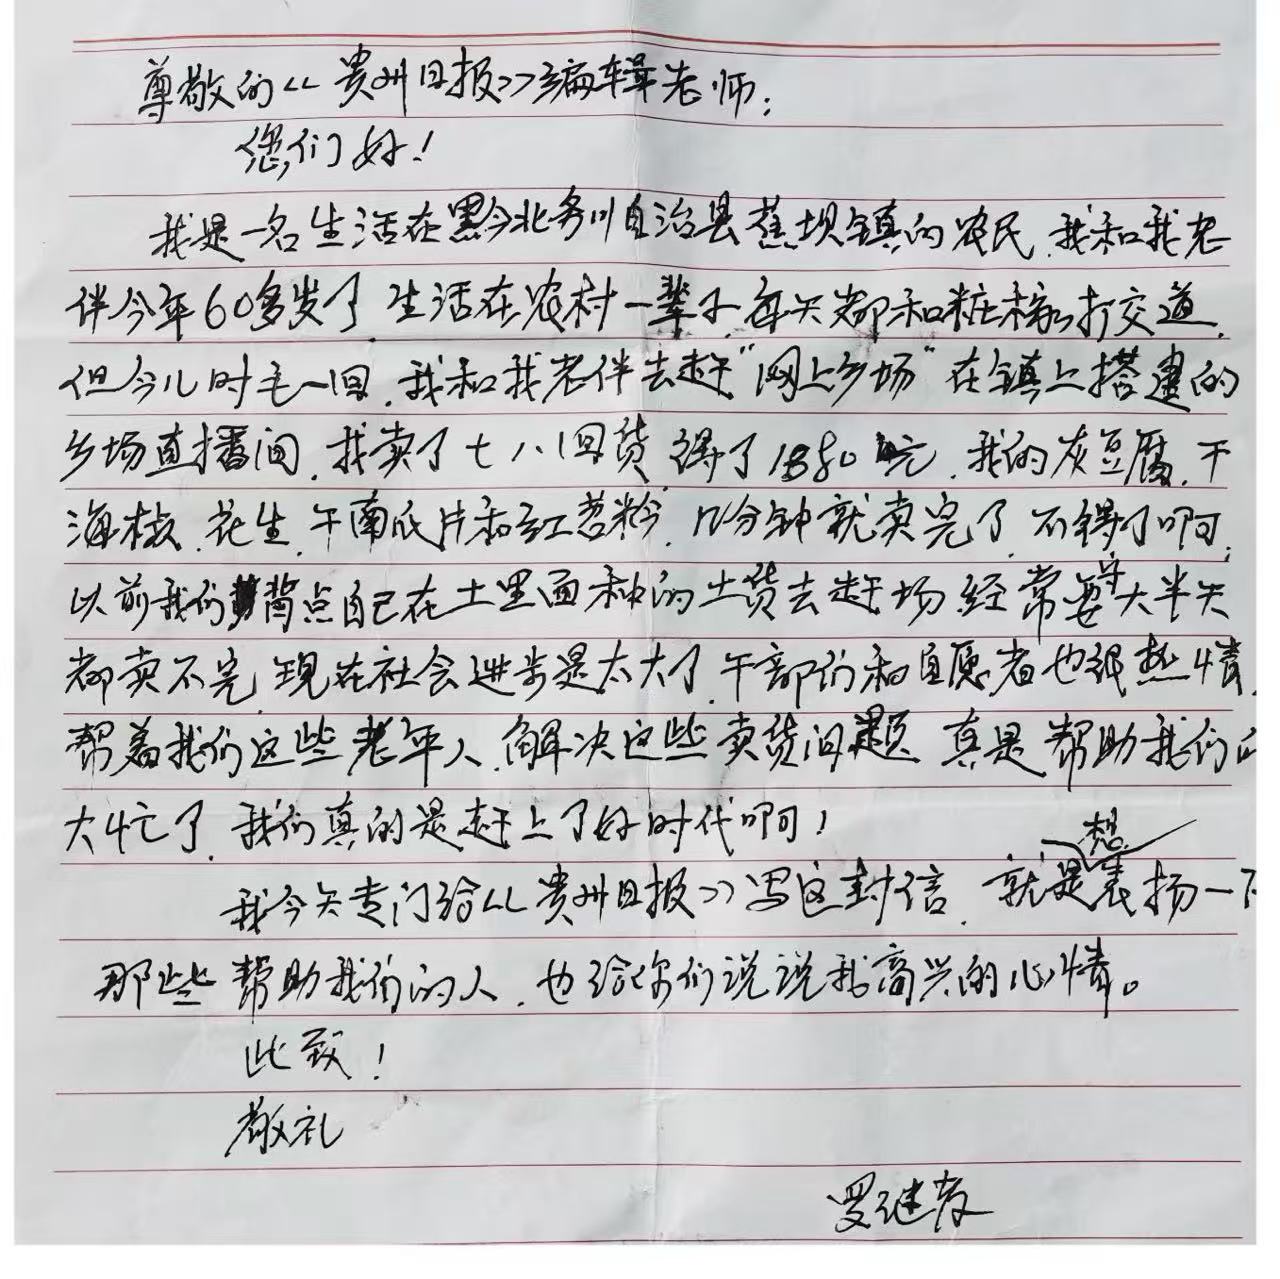 尊敬的《贵州日报》编辑老师：
您们好！
我是一名生活在黔北务川自治县蕉坝镇的农民，我和我老
伴今年60多岁了，生活在农村一辈子，每天都和粧稼打交道，
但今儿时毛一回，我和我老伴去赶“网上乡场”在镇上搭建的
乡场直播间，我卖了七八回货，得了1880元，我的灰豆腐，干
海椒，花生，干南瓜片和红苕粉，几分钟就卖完了，不得了啊，
以前我们背点自己在土里面种的土货去赶场，经常要守大半天
都卖不完，现在社会进步是太大了，干部们和自愿者也很热情，
帮着我们这些老年人，解决这些卖货问题，真是帮助我们的
大忙了，我们真的是赶上了好时代啊！
我今天专门给《贵州日报》写这封信，就是想表扬一下
那些帮助我们的人，也给你们说说我高兴的心情。
此致！
敬礼
罗继